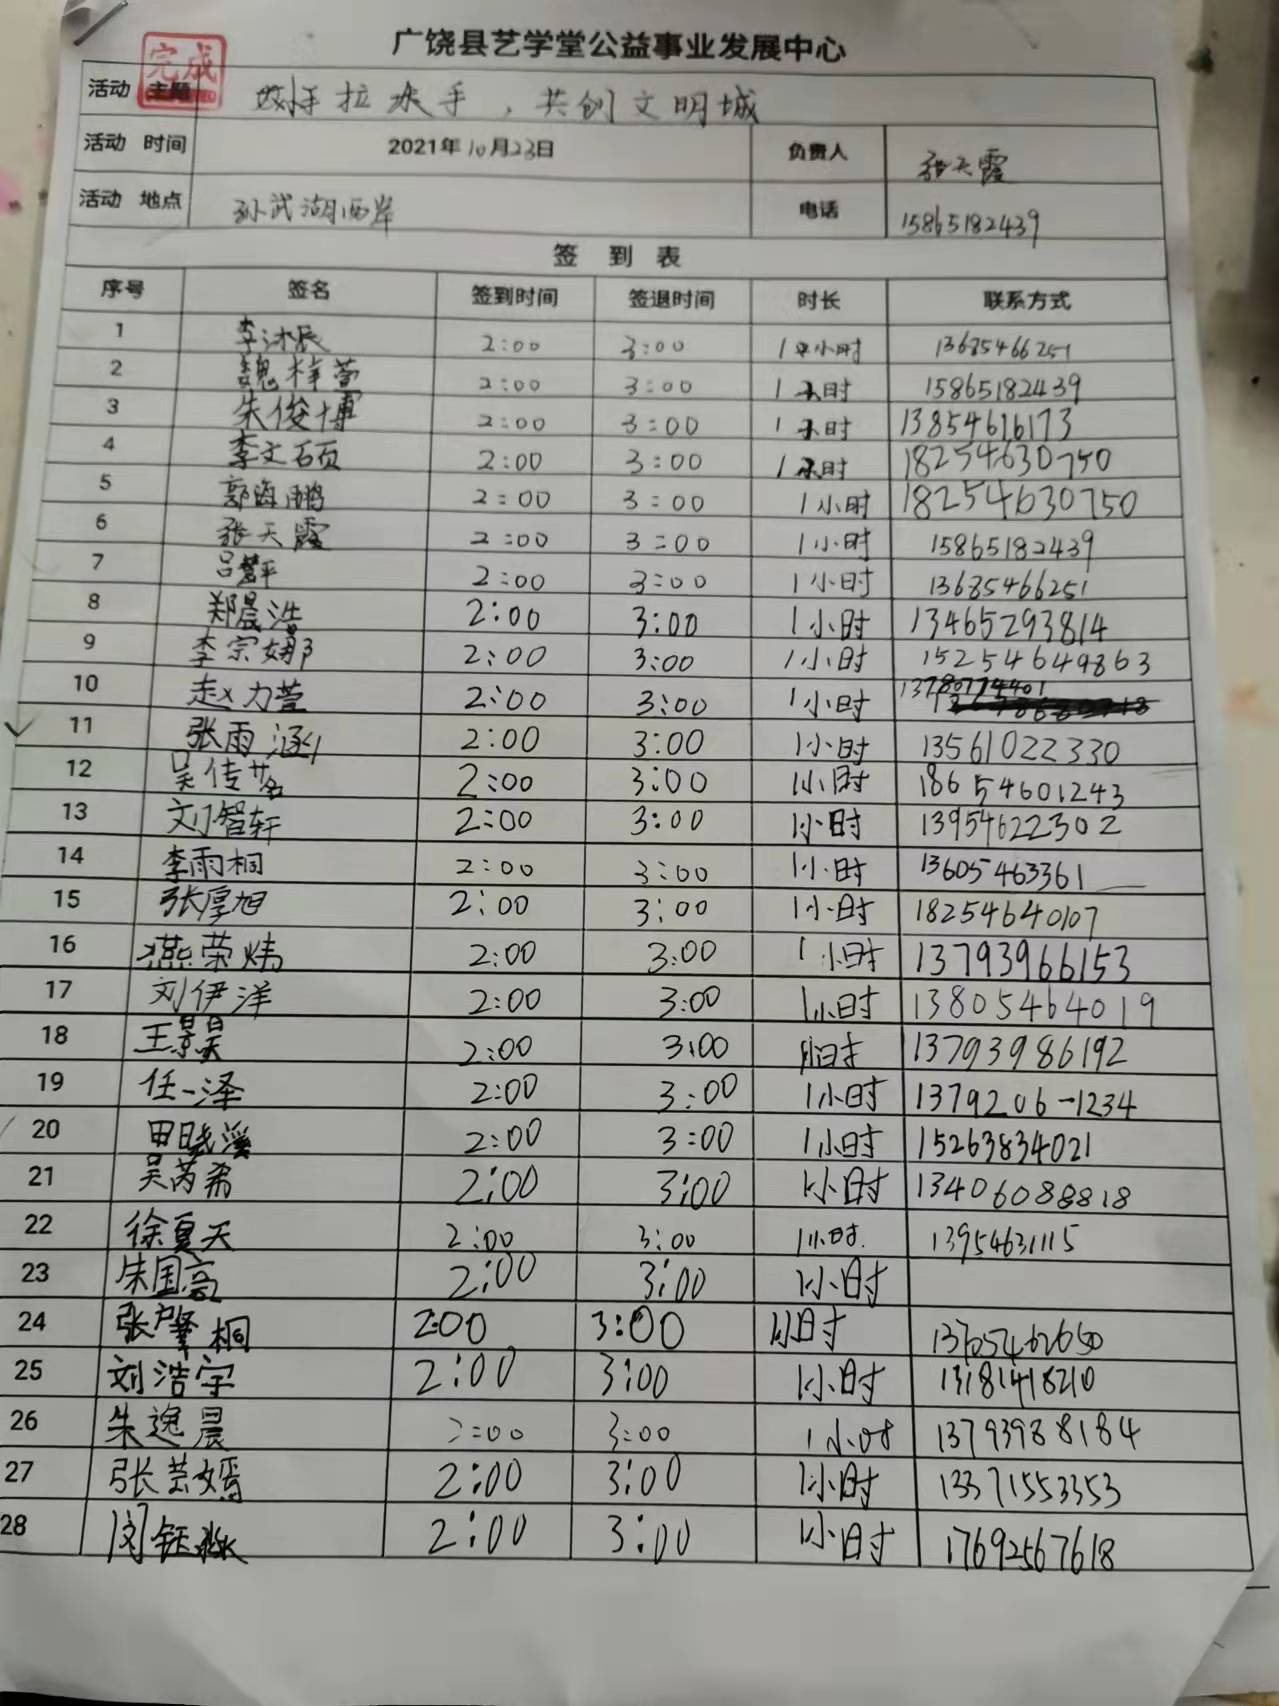 广饶县艺学堂公益事业发展中心
完成
活动 主题 拉大手，共创文明城
活动 时间 2021年10月23日 负责人 张天霞
活动 地点 孙武湖西岸 电话 15865182439
签 到 表
序号 签名 签到时间 签退时间 时长 联系方式
1 李沐辰 2:00 3:00 1小时 13685466251
2 魏梓萱 2:00 3:00 1小时 15865182439
3 朱俊博 2:00 3:00 1小时 13854616173
4 李文硕 2:00 3:00 1小时 18254630750
5 郭海鹏 2:00 3:00 1小时 18254630750
6 张天霞 2:00 3:00 1小时 15865182439
7 2:00 3:00 1小时 13685466251
8 郑晨浩 2:00 3:00 1小时 13465293814
9 李宗娜 2:00 3:00 1小时 15254649863
10 赵力萱 2:00 3:00 1小时 13780774401
11 张雨涵 2:00 3:00 1小时 13561022330
12 吴传茗 2:00 3:00 1小时 18654601243
13 刘智轩 2:00 3:00 1小时 13954622302
14 李雨桐 2:00 3:00 1小时 13605463361
15 张厚旭 2:00 3:00 1小时 18254640107
16 燕荣炜 2:00 3:00 1小时 13793966153
17 刘伊洋 2:00 3:00 1小时 13805464019
18 王景昊 2:00 3:00 1小时 13793986192
19 任一泽 2:00 3:00 1小时 1379206-1234
20 田晓溪 2:00 3:00 1小时 15263834021
21 吴芮希 2:00 3:00 1小时 13406088818
22 徐夏天 2:00 3:00 1小时 13954631115
23 朱国亮 2:00 3:00 1小时
24 张肇桐 2:00 3:00 1小时
25 刘浩宇 2:00 3:00 1小时 13181418210
26 朱逸晨 2:00 3:00 1小时 13793988184
27 张芸嫣 2:00 3:00 1小时 13371553353
28 2:00 3:00 1小时 17692567618